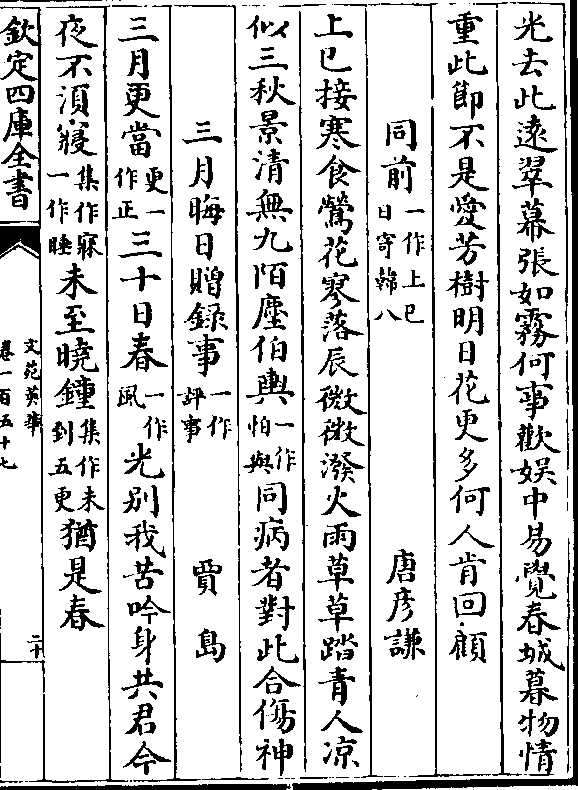 光去此遠翠幕張如霧何事歡娛中易覺春城暮物情
重此節不是愛芳樹明日花更多何人肯回顧
同前一作上巳日寄韓八 唐彥謙
上巳接寒食鶯花寥落辰微微潑火雨草草踏青人凉
似三秋景清無九陌塵伯輿一作怕與同病者對此合傷神
三月晦日贈錄事一作評事 賈島
三月更當更一作正三十日春一作風光别我苦吟身共君今
夜不湏寢集作寐一作睡未至曉鐘集作未到五更猶是春
欽定四庫全書
文苑英華
卷一百五十七
二十